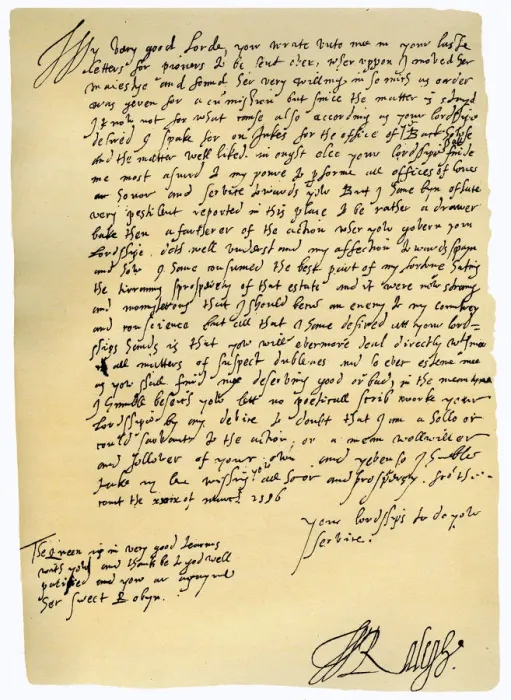 My very good Lorde, yow wrate unto me in your laste
letters for pioners to be sent over, wheruppon I moved her
maiestye and found her very willing, in so mich as order
was geven for a cumishion but since the matter is stayd
I know not for what cause also according as your lordshipe
desired I spake for on Jukes for the office of Back howse
and the matter well liked. in ought else your lordshipe finde
me most asurd to my poure to performe all offices of love
honor and service towards yow But I have byn of late
very pestilent reported in this place to be rather a drawer
bake then a fartherer of the action wher yow govern your
lordshipe doth well understand my affection towards spayn
and how I have consumed the best part of my fortune hating
the tirannus prosperety of that estate and it were now strang
and monsterous that I should becum an enemy to my countrey
and conscience but all that I have desired att your lord=
ships hands is that yow will evermore deal directly with mee
in all matters of suspect dublenes and so ever esteme mee
as yow shall find mee deserving good or bad, in the mean tyme
I humble beseich yow lett no poeticall scrib worke your
lordshipe by any device to doubt that I am a hollo or
could sarvant to the action, or a mean wellwiller
and follower of your own and yeven so I humble
take my leve wishing yow all honor and prosperety. from the
court the xxix of march 1586
your lordships to do yow
service.
The Queen is in very good tearms
with yow and thanks be to god well
pacified and yow ar agayne
her sweet Robyn.
W Ralegh.